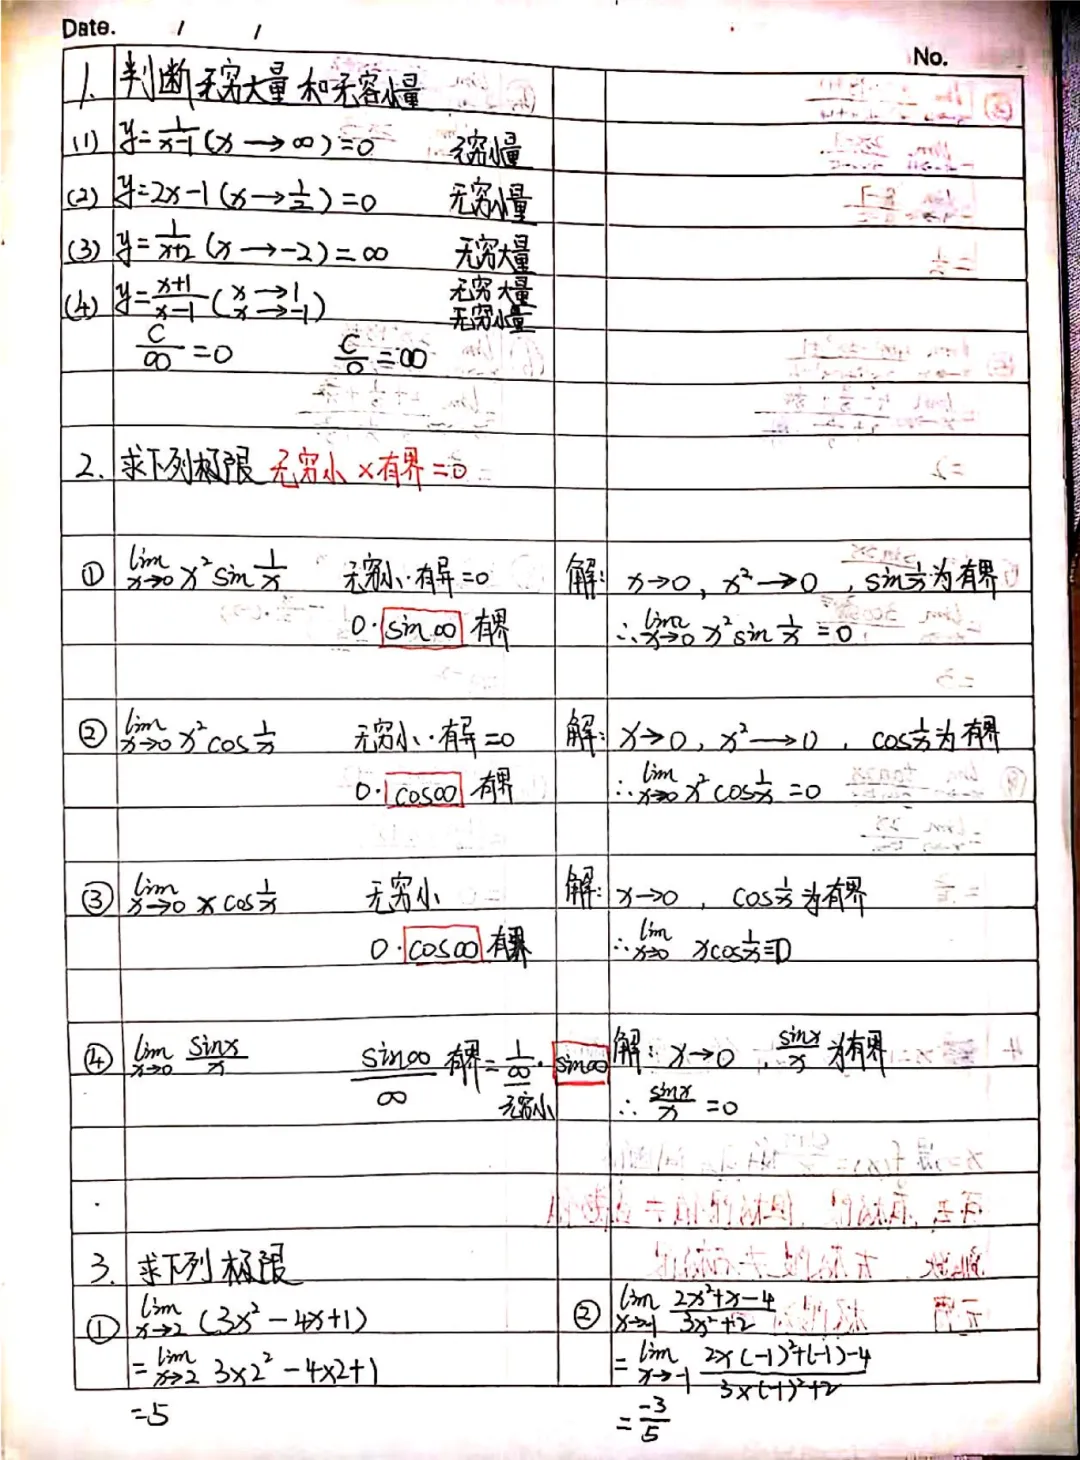 Date. / /
No.
1. 判断无穷大量和无穷小量
(1) y=1/(x-1) (x→∞)=0 无穷小量
(2) y=2x-1 (x→1/2)=0 无穷小量
(3) y=1/(x+2) (x→-2)=∞ 无穷大量
(4) y=(x+1)/(x-1) (x→1 无穷大量
x→-1) 无穷小量
C/∞=0 C/0=∞
2. 求下列极限 无穷小×有界=0
① lim x→0 x²sin 1/x 无穷小·有界=0 解: x→0, x²→0, sin 1/x 为有界
0·sin∞ 有界 ∴ lim x→0 x²sin 1/x =0
② lim x→0 x²cos 1/x 无穷小·有界=0 解: x→0, x²→0, cos 1/x 为有界
0·cos∞ 有界 ∴ lim x→0 x²cos 1/x =0
③ lim x→0 x cos 1/x 无穷小 解: x→0, cos 1/x 为有界
0·cos∞ 有界 ∴ lim x→0 xcos 1/x =0
④ lim x→0 sinx/x sin∞/∞ 有界 = 1/∞ · sin∞ 解: x→0, sinx/x 为有界
无穷小 ∴ sinx/x =0
3. 求下列极限
① lim x→2 (3x²-4x+1) ② lim x→-1 (2x²+x-4)/(3x²+2)
= lim x→2 3×2²-4×2+1 = lim x→-1 (2×(-1)²+(-1)-4)/(3×(-1)²+2)
=5 = -3/5